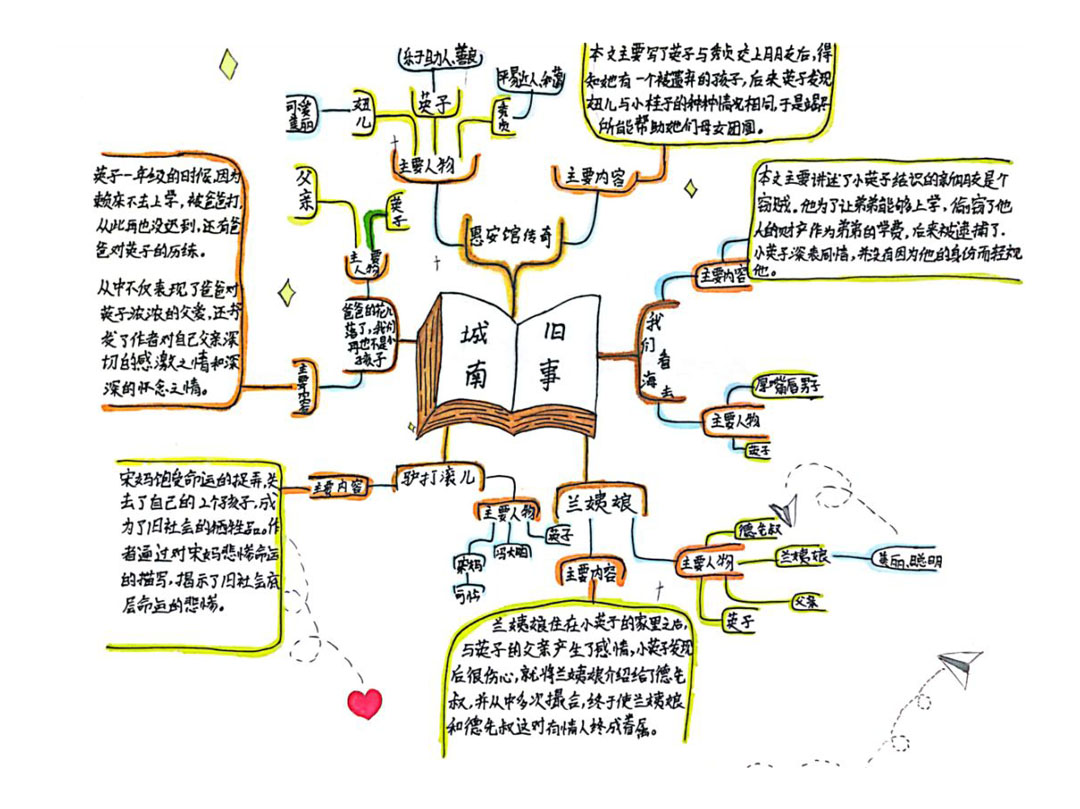 城 旧
南 事
思安馆传奇
主要人物
妞儿
可爱
美丽
英子
乐于助人、善良
秀贞
平易近人、和蔼
主要内容
本文主要写了英子与秀贞交上朋友后,得
知她有一个被遗弃的孩子,后来英子发现
妞儿与小桂子的种种情况相同,于是竭尽
所能帮助她们母女团圆。
我们看海去
主要内容
本文主要讲述了小英子结识的新朋友是个
窃贼。他为了让弟弟能够上学,偷窃了他
人的财产作为弟弟的学费,后来被逮捕了.
小英子深表同情,并没有因为他的身份而轻视
他。
主要人物
厚嘴唇男子
英子
兰姨娘
主要人物
德先叔
兰姨娘
美丽、聪明
父亲
英子
主要内容
兰姨娘住在小英子的家里之后,
与英子的父亲产生了感情,小英子发现
后很伤心,就将兰姨娘介绍给了德先
叔,并从中多次撮合,终于使兰姨娘
和德先叔这对有情人终成眷属。
驴打滚儿
主要人物
宋妈
可怜
冯大明
英子
主要内容
宋妈饱受命运的捉弄,失
去了自己的2个孩子,成
为了旧社会的牺牲品。作
者通过对宋妈悲惨命运
的描写,揭示了旧社会底
层命运的悲惨。
爸爸的花儿
落了,我们
再也不是小
孩子
主要
人物
父亲
英子
主要内容
英子一年级的时候,因为
赖床不去上学,被爸爸打,
从此再也没迟到,还有爸
爸对英子的历练。
从中不仅表现了爸爸对
英子浓浓的父爱,还抒
发了作者对自己父亲深
切的感激之情和深
深的怀念之情。